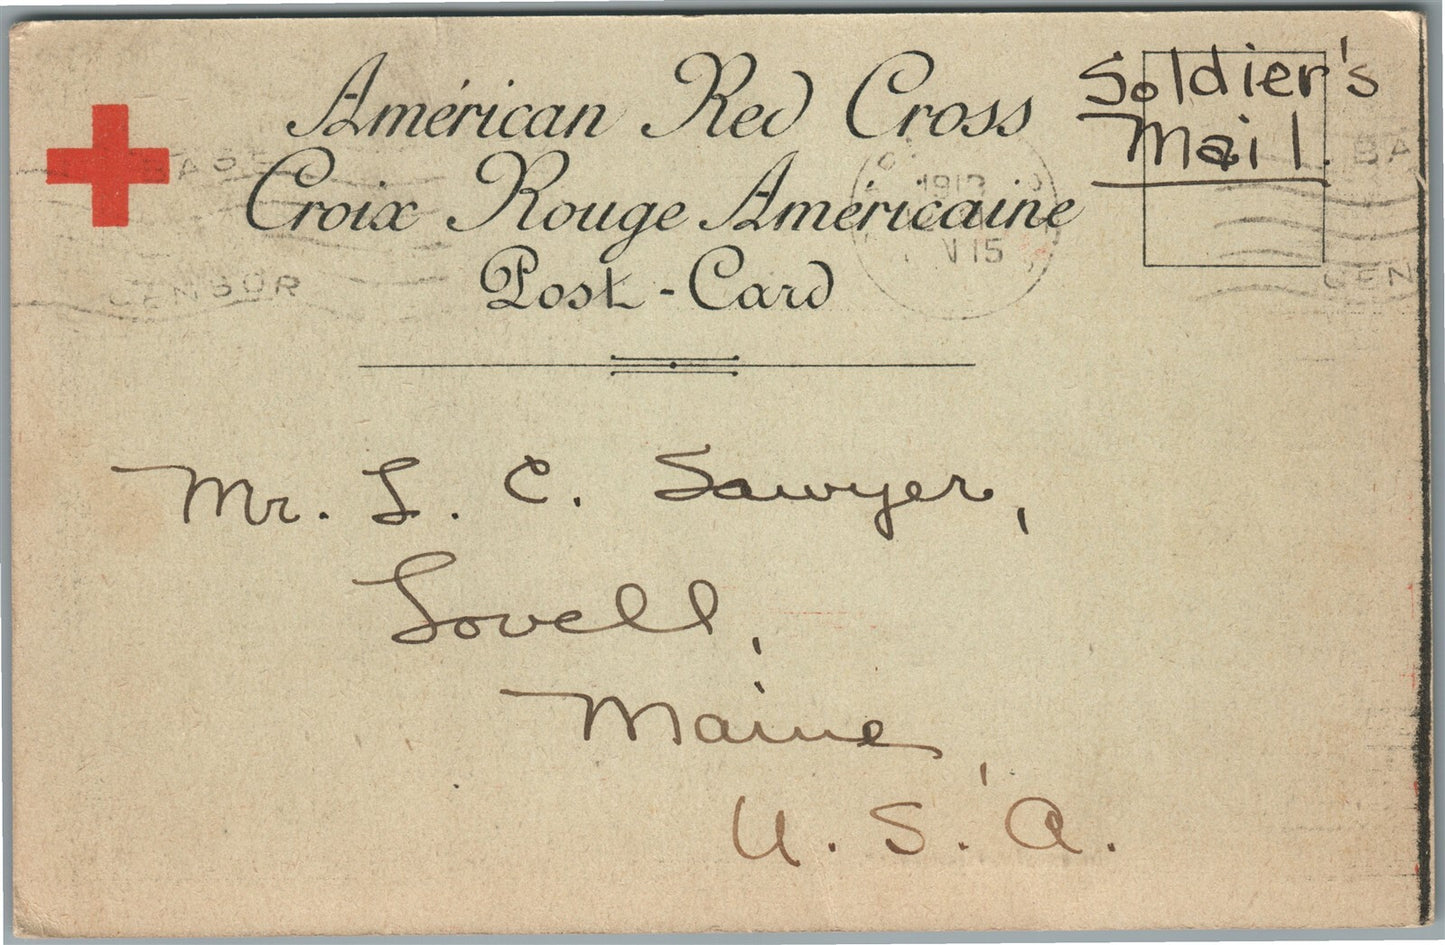 Américan Red Cross
Croix Rouge Américaine
Post-Card
Soldier's
Mail.
BASE
CENSOR
15
BA
CEN
Mr. L. C. Sawyer,
Lovell,
Maine
U. S. A.